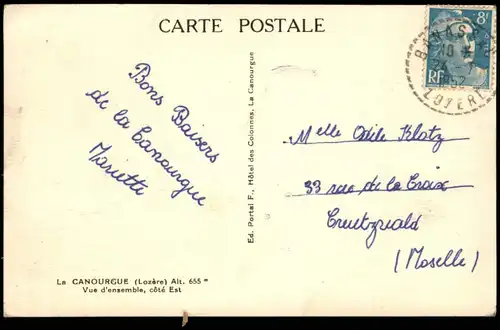 CARTE POSTALE
Bons Baisers
de la Canourgue
Mariette
Ed. Portal F., Hôtel des Colonnes, La Canourgue
8F
RF
BANASSAC
10 *
24 - 7
1952
LOZERE
Melle Odile Klotz
33 rue de la Croix
Creutzwald
(Moselle)
La CANOURGUE (Lozère) Alt. 655 m
Vue d'ensemble, côté Est